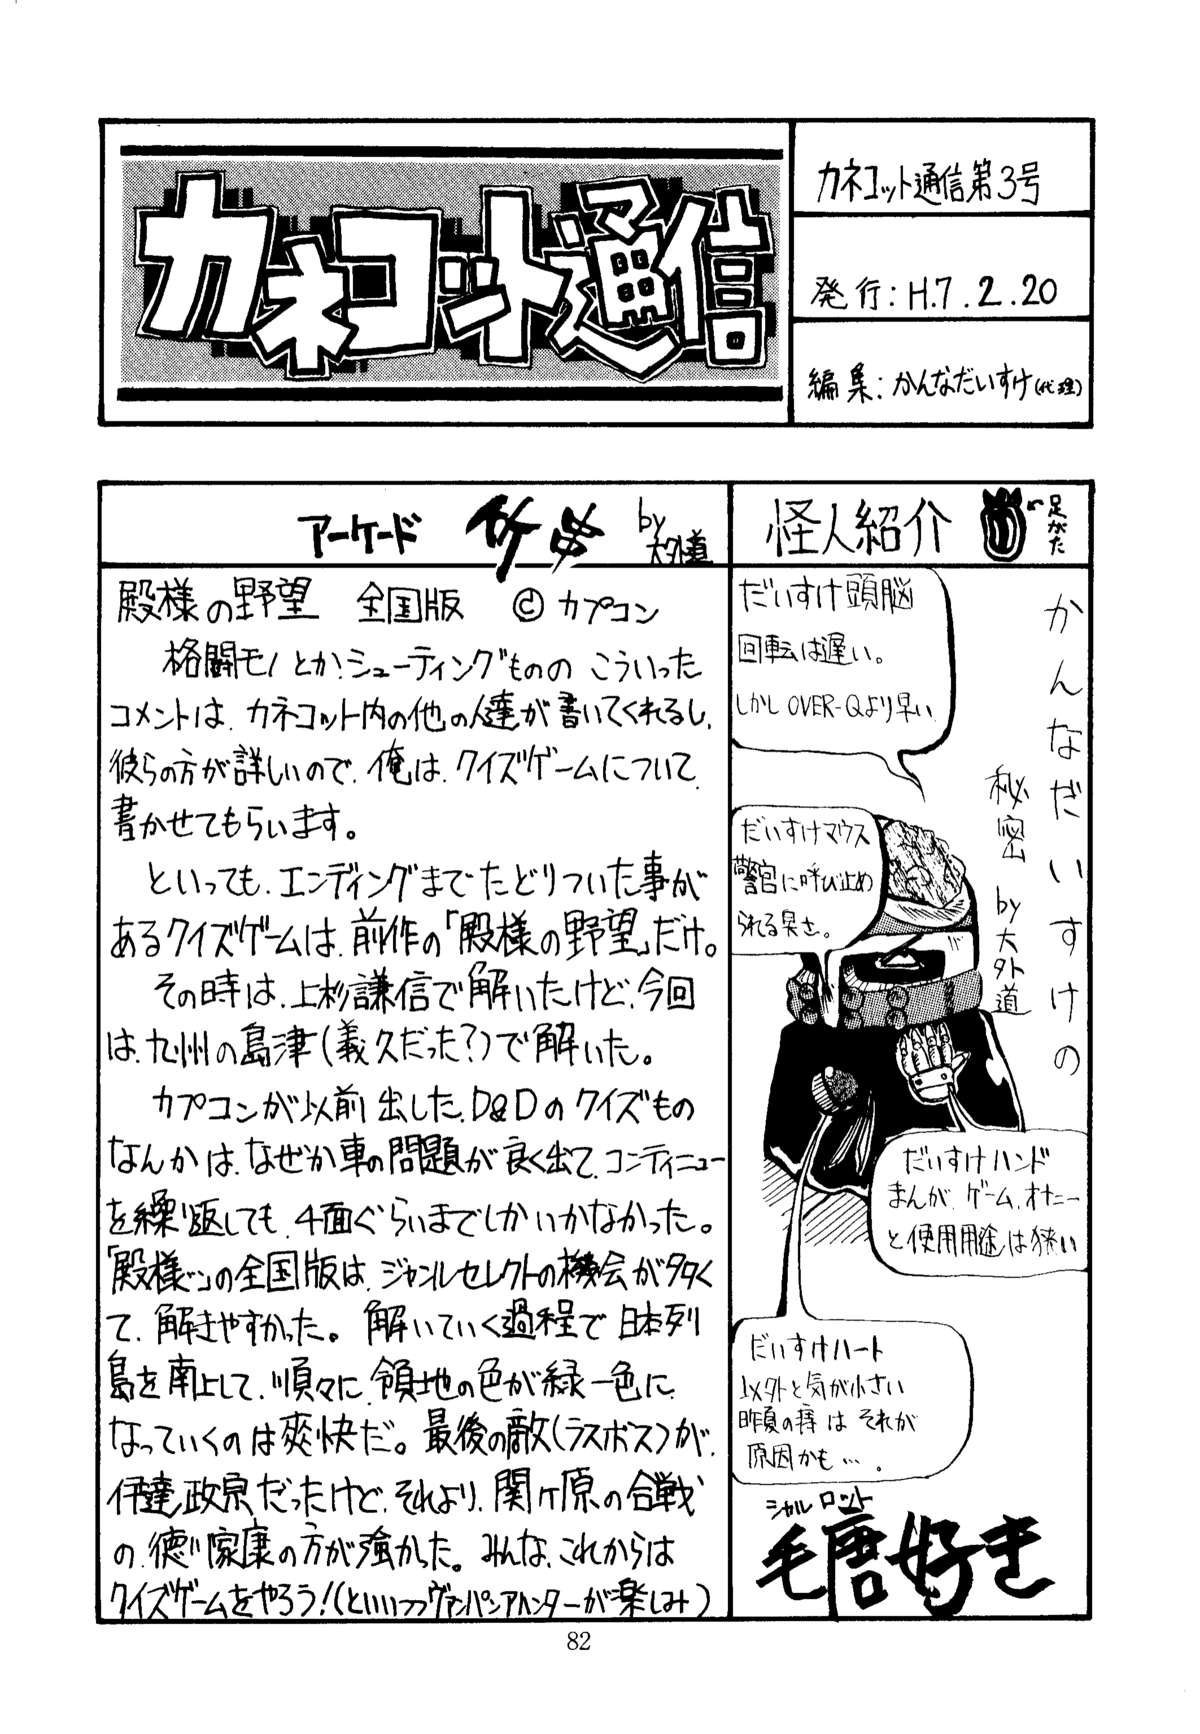 カネコット通信
カネコット通信第3号
発行：H.7.2.20
編集：かんなだいすけ(代理)
アーケード 竹串 by大外道
殿様の野望 全国版 © カプコン
格闘モノとか、シューティングものの こういった
コメントは、カネコット内の他の人達が書いてくれるし、
彼らの方が詳しいので、俺は、クイズゲームについて
書かせてもらいます。
といっても、エンディングまでたどりついた事が
あるクイズゲームは、前作の「殿様の野望」だけ。
その時は、上杉謙信で解いたけど、今回
は、九州の島津(義久だった?)で解いた。
カプコンが以前出した、D&Dのクイズもの
なんかは、なぜか車の問題が良く出て、コンティニュー
を繰り返しても、4面ぐらいまでしかいかなかった。
「殿様〜」の全国版は、ジャンルセレクトの機会が多く
て、解きやすかった。解いていく過程で日本列
島を南上して、順々に、領地の色が緑一色に
なっていくのは爽快だ。最後の敵(ラスボス)が、
伊達政宗だったけど、それより、関ヶ原の合戦
の、徳川家康の方が強かった。みんな、これからは
クイズゲームをやろう!(といいつつヴァンパイアハンターが楽しみ)
怪人紹介
足がた
かんなだいすけの
秘密 by大外道
だいすけ頭脳
回転は遅い。
しかし OVER-Qより早い
だいすけマウス
警官に呼び止め
られる臭さ。
だいすけハンド
まんが、ゲーム、オナニー
と使用用途は狭い
だいすけハート
以外と気が小さい
昨夏の痔は それが
原因かも…。
シャルロット
毛唐好き
82